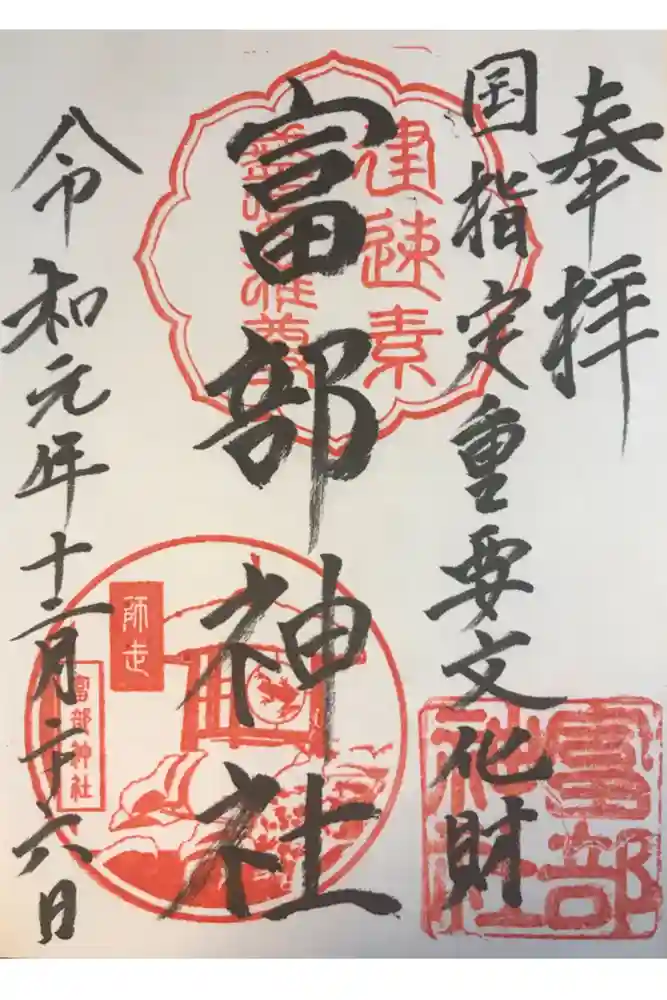 奉拝
国指定重要文化財
建速素
盞嗚雄尊
富部神社
富部
神社
師走
富部神社
令和元年十二月二十六日